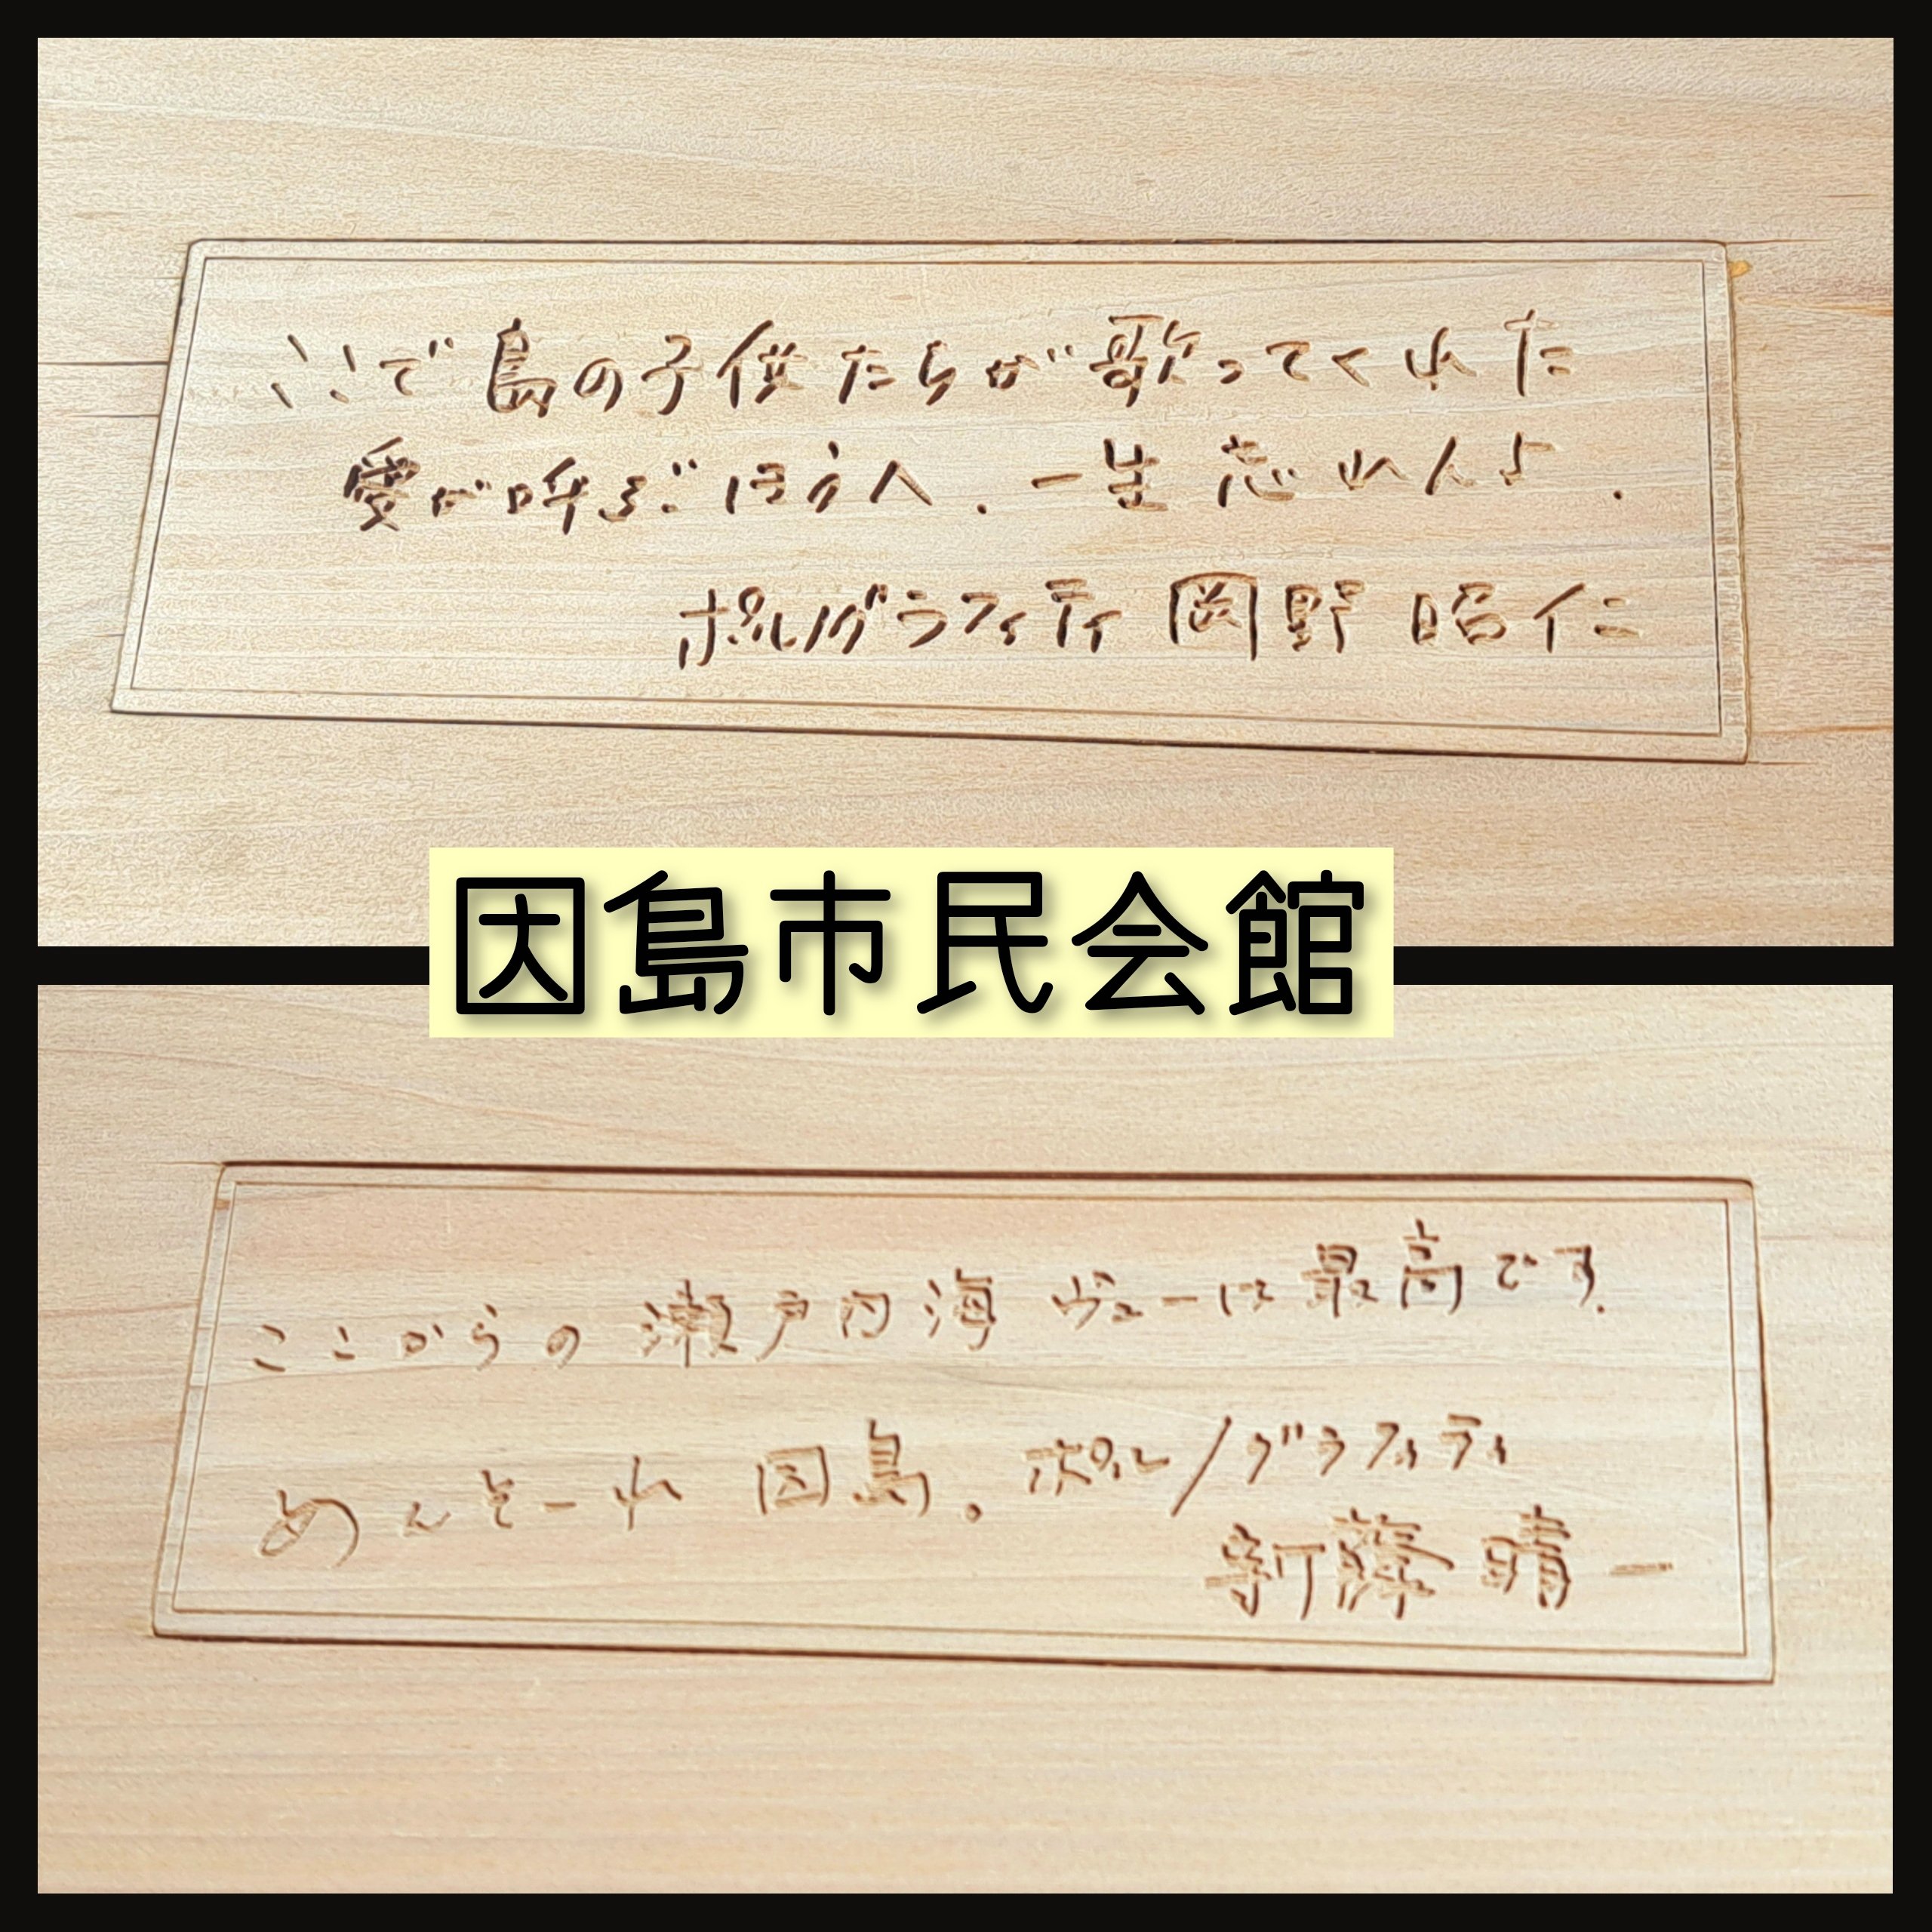 ここで島の子供たちが歌ってくれた
愛が呼ぶほうへ.一生忘れんよ.
ポルノグラフィティ 岡野 昭仁
因島市民会館
ここからの瀬戸内海ヴューは最高です.
めんそーれ 因島。ポルノグラフィティ
新藤 晴一